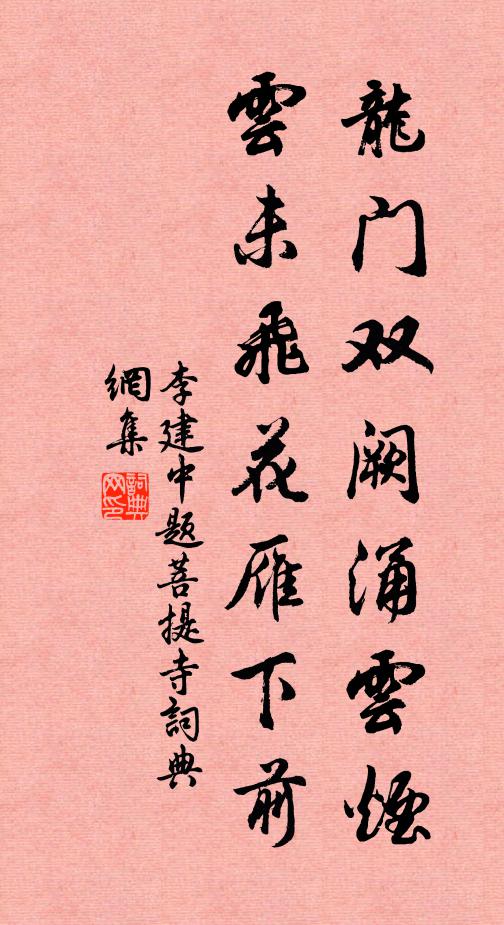 龍门双阙涌雲煙
雲未飛花雁下前
李建中题菩提寺詞典
網集
詞典
网印